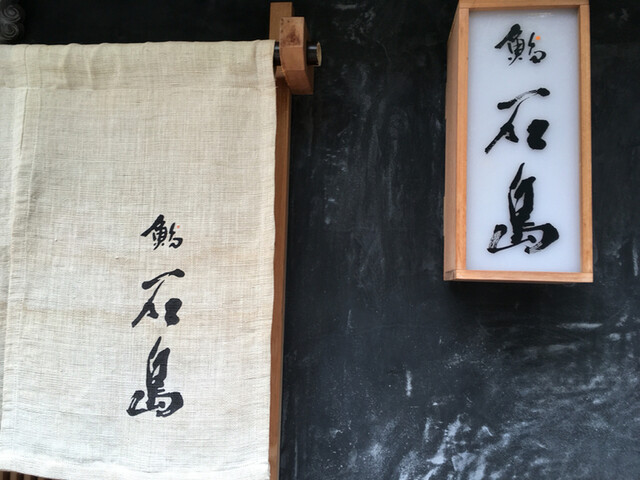 鮨
石
島
鮨
石
島